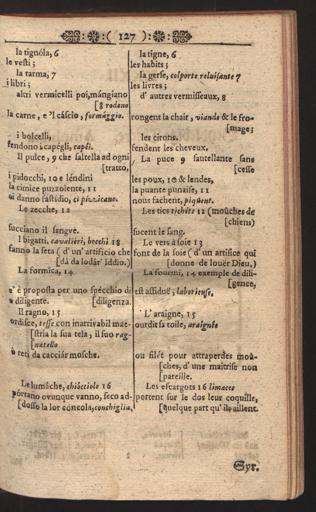 ( 127 )
la tignóla, 6
le vesti ;
la tarma, 7
i libri ;
altri vermicelli poi, mángiano
[8 rodono
la carne, e 'l cáscio, formággio.
i bolcelli,
fendono i capégli, capéi.
Il pulce, 9 che saltella ad ogni
[tratto,
i pidocchi, 10 e léndini
la cimice puzzolente, 11
ci danno fastidio, ci pizzicano.
Le zecche, 12
succiano il sangve.
I bigatti, cavaliéri, bocchi 13
fanno la seta ( d' un' artificio che
[dà da lodár' Iddio.)
La formica, 14
e' è proposta per uno spécchio di
[diligenza.
diligente.
Il ragno, 15
ordisce, tesse con inarrivabil mae-
[stria la sua tela, il suo rag-
[natello
ò reti da cacciár mosche.
Le lumáche, chiócciole 16
pórtano ovunque vanno, seco ad-
[dosso la lor concola, conchiglia.
la tigne, 6
les habits ;
la gerse, colporte reluisante 7
les livres ;
d' autres vermisseaux, 8
rongent la chair, viande & le fro-
[mage;
les cirons.
fendent les cheveux.
La puce 9 sautellante sans
[cesse
les poux, 10 & lendes,
la puante punaise, 11
nous fachent, piquent.
Les tics richets 12 (mouches de
[chiens)
sucent le sang.
Le vers à soie 13
font de la soie ( d' un artifice qui
[donne de louër Dieu.)
La fourmi, 14 exemple de dili-
[gence,
est assiduë, laborieuse.
L' araigne, 15
ourdit sa toile, araignée
ou filét pour attraper des mou-
[ches, d' une maitrise non
[pareille.
Les escargots 16 limaces
portent sur le dos leur coquille,
[quelque part qu' ils aillent.
Syr.